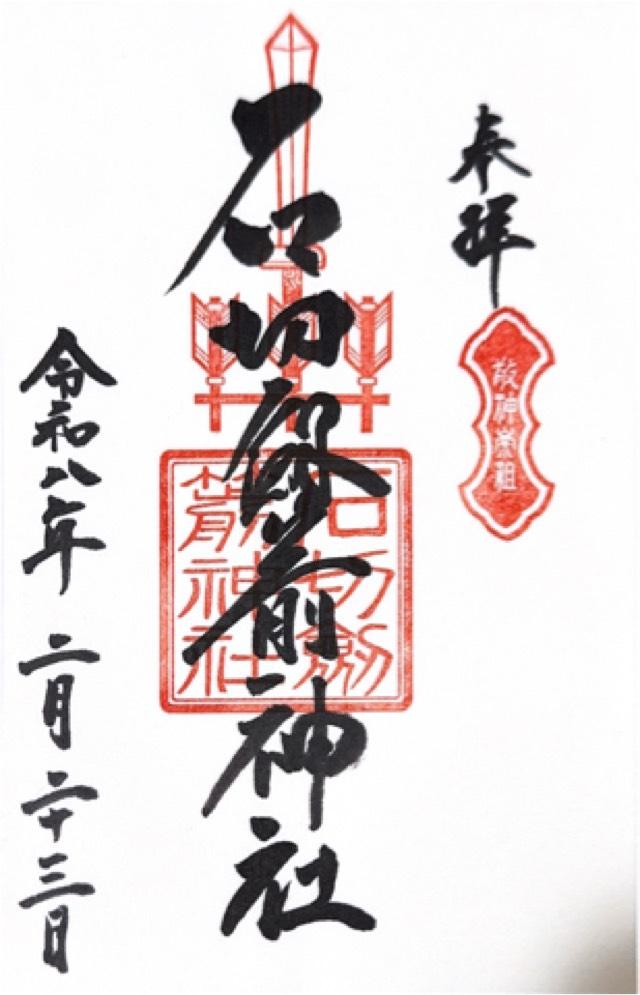 奉拝
敬神崇祖
石切劔箭神社
石切劔
箭神社
令和八年二月二十三日